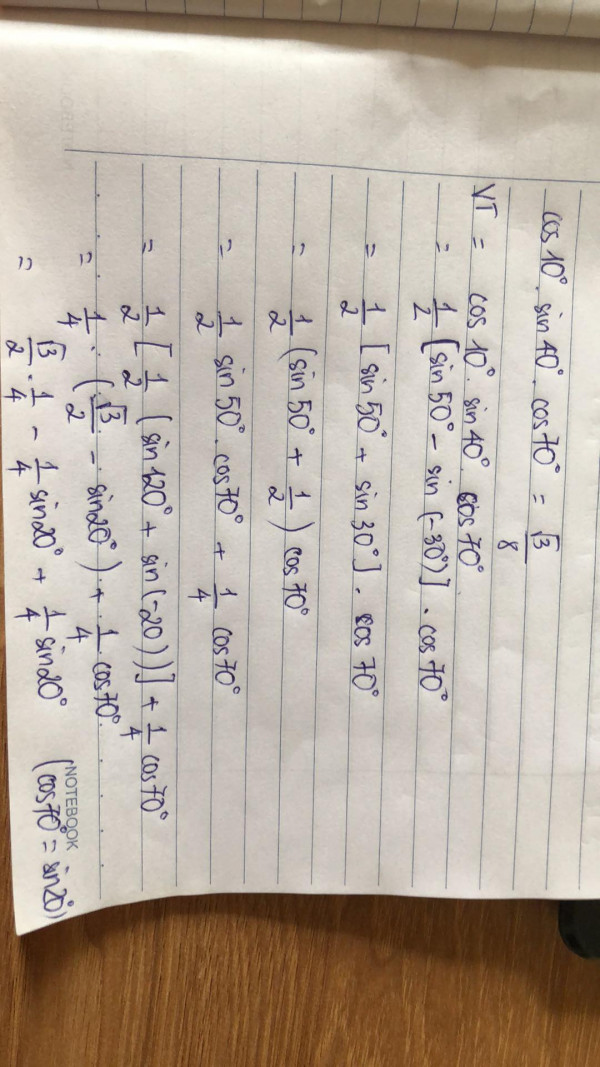 cos 10°. sin 40°. cos 70° = √3/8
VT = cos 10°. sin 40°. cos 70°.
= 1/2 [sin 50° - sin (-30°)]. cos 70°
= 1/2 [sin 50° + sin 30°]. cos 70°
= 1/2 (sin 50° + 1/2) cos 70°
= 1/2 sin 50°. cos 70° + 1/4 cos 70°
= 1/2 [1/2 (sin 120° + sin (-20))] + 1/4 cos 70°
= 1/4. (√3/2 - sin 20°) + 1/4. cos 70°.
= √3/2. 1/4 - 1/4 sin 20° + 1/4 sin 20° (cos 70° = sin 20°)
NOTEBOOK